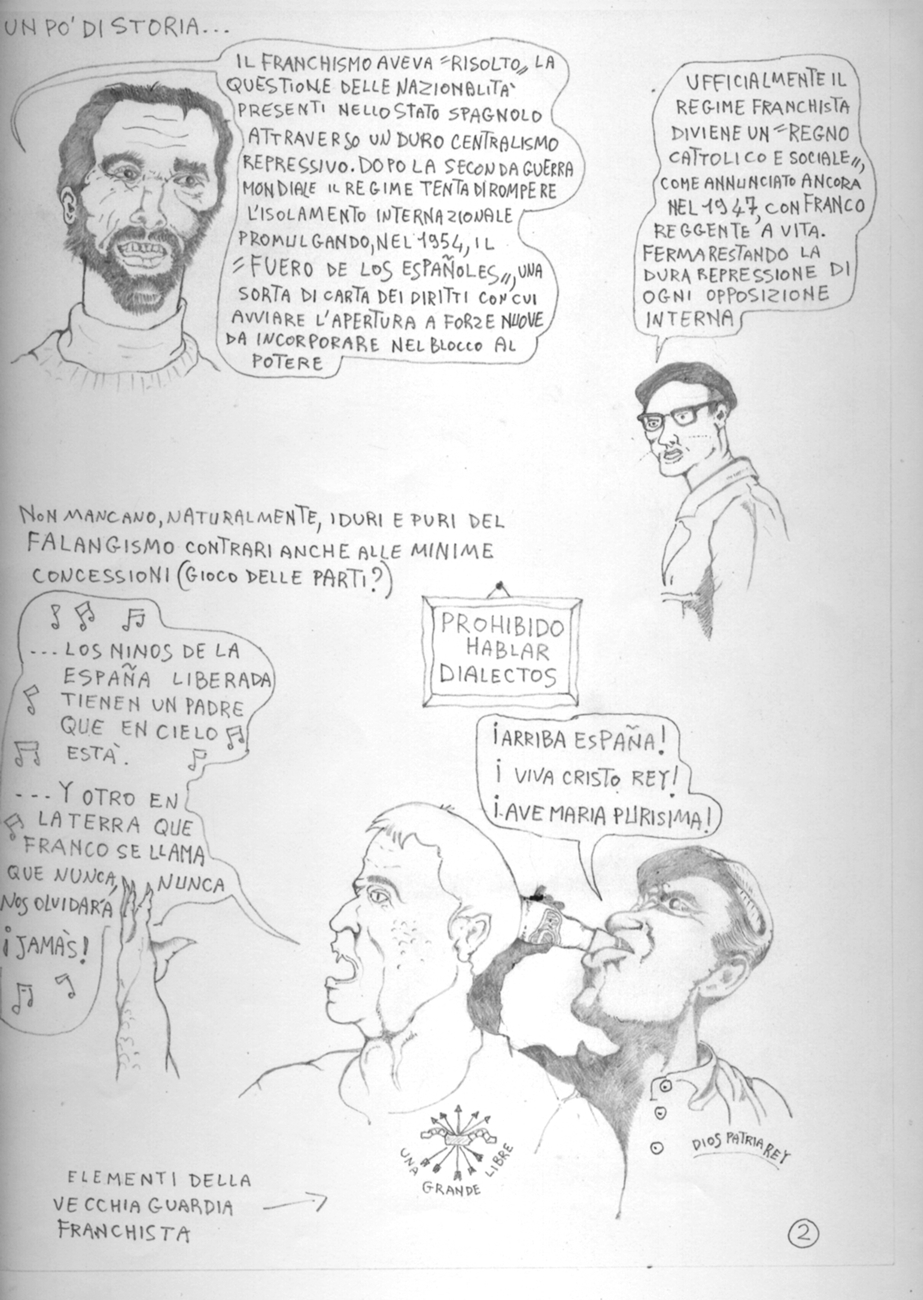 UN PO' DI STORIA...
IL FRANCHISMO AVEVA "RISOLTO" LA
QUESTIONE DELLE NAZIONALITA'
PRESENTI NELLO STATO SPAGNOLO
ATTRAVERSO UN DURO CENTRALISMO
REPRESSIVO. DOPO LA SECONDA GUERRA
MONDIALE IL REGIME TENTA DI ROMPERE
L'ISOLAMENTO INTERNAZIONALE
PROMULGANDO, NEL 1954, IL
"FUERO DE LOS ESPAÑOLES", UNA
SORTA DI CARTA DEI DIRITTI CON CUI
AVVIARE L'APERTURA A FORZE NUOVE
DA INCORPORARE NEL BLOCCO AL
POTERE
UFFICIALMENTE IL
REGIME FRANCHISTA
DIVIENE UN "REGNO
CATTOLICO E SOCIALE",
COME ANNUNCIATO ANCORA
NEL 1947, CON FRANCO
REGGENTE A VITA.
FERMA RESTANDO LA
DURA REPRESSIONE DI
OGNI OPPOSIZIONE
INTERNA
NON MANCANO, NATURALMENTE, I DURI E PURI DEL
FALANGISMO CONTRARI ANCHE ALLE MINIME
CONCESSIONI (GIOCO DELLE PARTI?)
...LOS NINOS DE LA
ESPAÑA LIBERADA
TIENEN UN PADRE
QUE EN CIELO
ESTÀ.
...Y OTRO EN
LA TERRA QUE
FRANCO SE LLAMA
QUE NUNCA, NUNCA
NOS OLVIDARÀ
¡JAMÀS!
PROHIBIDO
HABLAR
DIALECTOS
¡ARRIBA ESPAÑA!
¡VIVA CRISTO REY!
¡AVE MARIA PURISIMA!
UNA
GRANDE
LIBRE
DIOS PATRIA REY
ELEMENTI DELLA
VECCHIA GUARDIA
FRANCHISTA
2